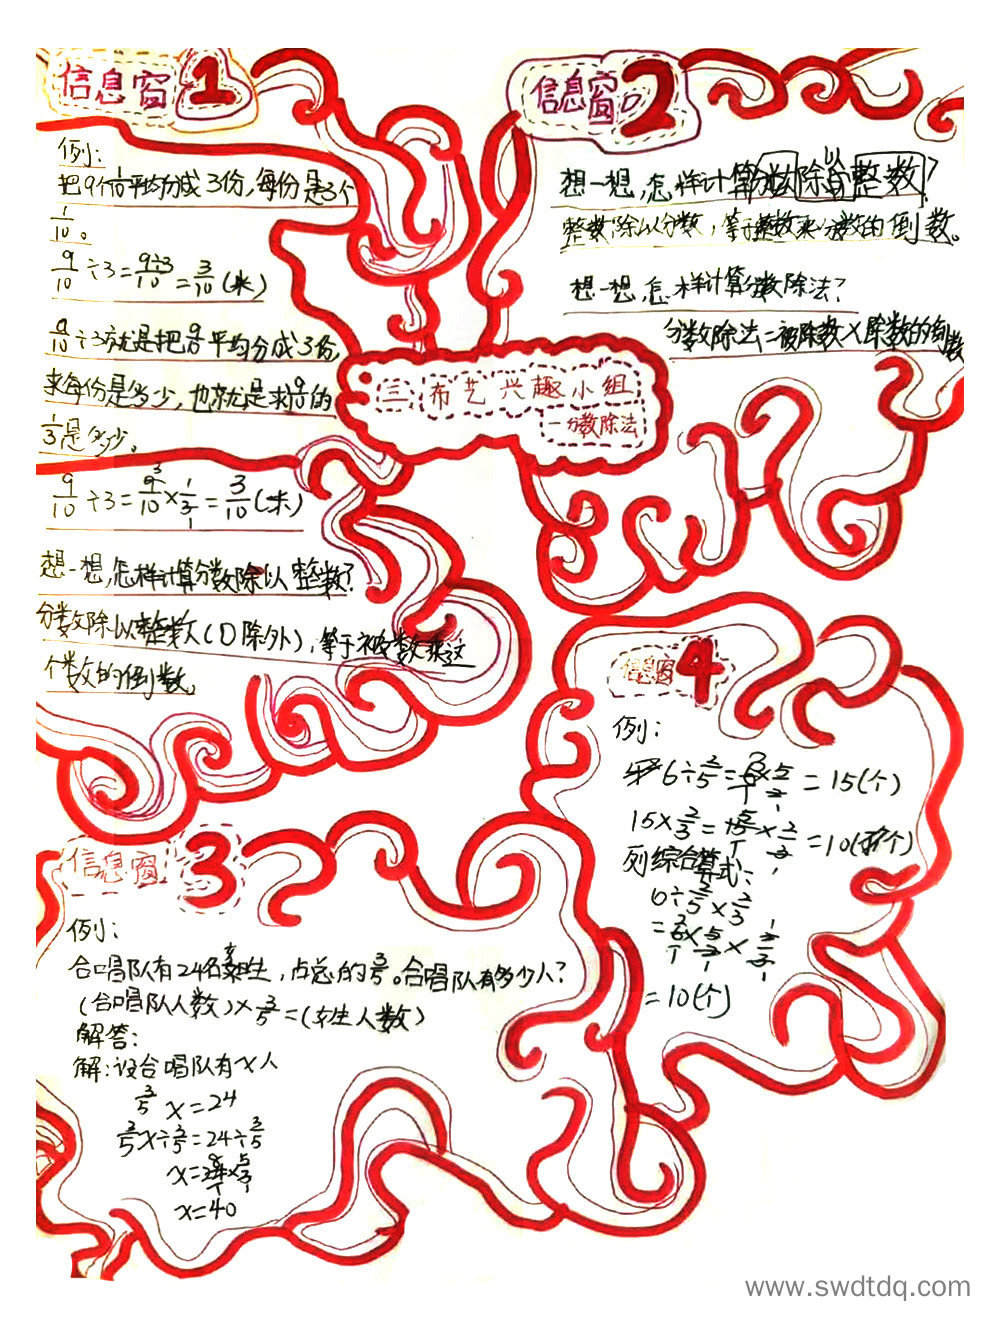 信息窗1
例:
把9个1/10平均分成3份,每份是3个
1/10。
9/10÷3=9÷3/10=3/10(米)
9/10÷3就是把9/10平均分成3份,
求每份是多少,也就是求9/10的
1/3是多少。
9/10÷3=9/10×1/3=3/10(米)
想一想,怎样计算分数除以整数?
分数除以整数(0除外),等于被数乘这
个数的倒数。
信息窗2
想一想,怎样计算分数除以整数?
整数除以分数,等于整数乘分数的倒数。
想一想,怎样计算分数除法?
分数除法=被除数×除数的倒数
三、布艺兴趣小组
—分数除法
信息窗3
例:
合唱队有24名女生,占总的3/5。合唱队有多少人?
(合唱队人数)×3/5=(女生人数)
解答:
解:设合唱队有x人
3/5x=24
3/5x÷3/5=24÷3/5
x=24×5/3
x=40
信息窗4
例:
6÷2/5=6×5/2=15(个)
15×2/3=15×2/3=10(个)
列综合算式:
6÷2/5×2/3
=6×5/2×2/3
=10(个)
www.swdtdq.com